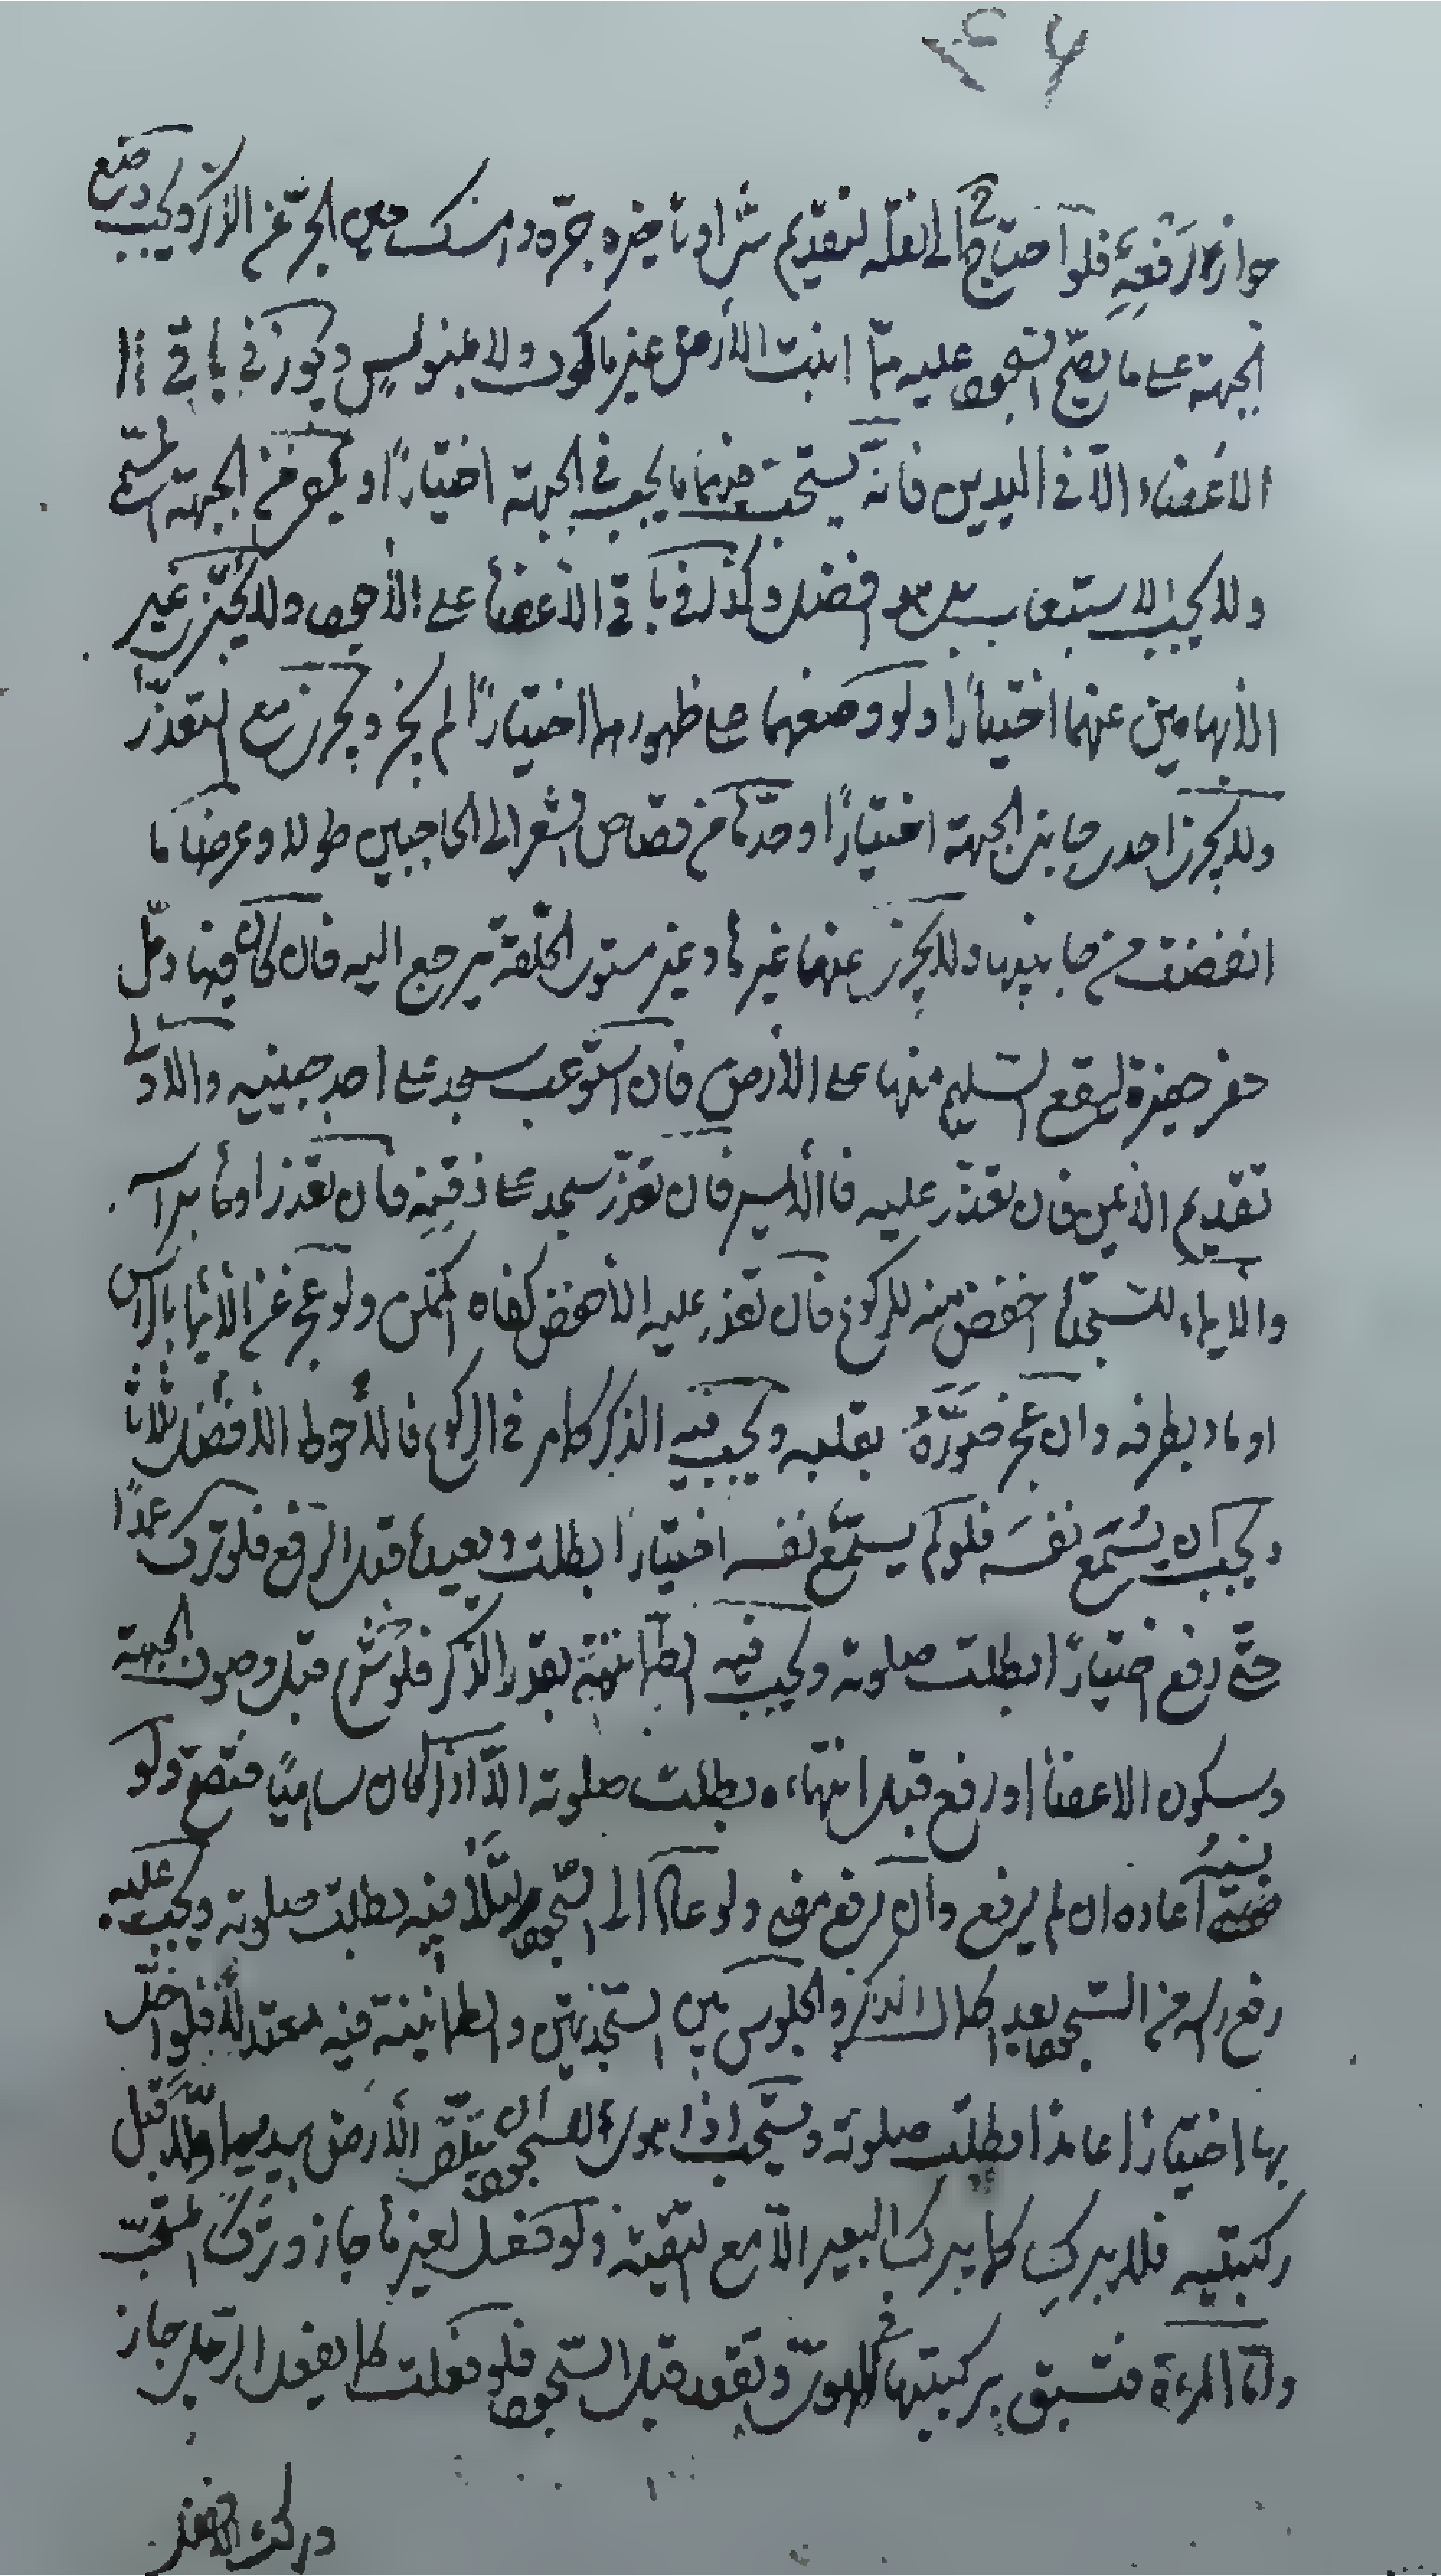 جواز رفعه فلو احتاج الى نقله لتقديم شئ او تاخيره جره وامسك معين الجر عن الذكر ويجب وضع
الجبهة على ما يصح السجود عليه مما انبتت الأرض غير ماكول ولا ملبوس ويجوز في باقي
الاعضاء الا في اليدين فانه يستحب فيهما ما يجب في الجبهة اختيارا ويكفي من الجبهة المسمى
ولا يجب الاستيعاب بل هو افضل وكذلك في باقي الأعضاء على الأحوط ولا يجزي غير
الأبهامين عنهما اختيارا ولو وضعهما على ظهورهما اختيارا لم يجز ويجزي مع التعذر
ولا يجزي احد جانبي الجبهة اختيارا وحدها من قصاص الشعر الى الحاجبين طولا وعرضا ما
انخفضت من جانبيها ولا يجزي عنهما غيرها وغير مستوى الخلقة يرجع اليه فان كان فيها دمل
حفر حفيرة ليقع السليم منها على الأرض فان استوعب سجد على احد جبينيه والاولى
تقديم الأيمن فان تعذر عليه فالأيسر فان تعذر سجد على ذقنه فان تعذر اومأ برأسه
والايماء للسجدة اخفض منه للركوع فان تعذر عليه الأخفض كفاه الممكن ولو عجز عن الأيماء بالراس
اوماء بطرفه وان عجز صوره بقلبه ويجب فيه الذكر كما مر في الركوع فالأحوط الأفضل ثلاثا
ويجب ان يسمع نفسه فلو لم يسمع نفسه اختيارا بطلت ويعيده قبل الرفع فلو ترك عمدا
حتى رفع اختيارا بطلت صلوته ويجب فيه الطمأنينة بقدر الذكر فلو شرع قبل وصول الجبهة
وسكون الاعضاء او رفع قبل انتهاءه بطلت صلوته الا اذا كان ساهيا فتصح ولو
نسيه اعاده ان لم يرفع وان رفع مضى ولو عاد الى السجود فيه بطلت صلوته ويجب عليه
رفع راسه من السجود بعد اكمال الذكر والجلوس بين السجدتين والطمأنينة فيه معتدلا فلو اخل
بها اختيارا عامدا بطلت صلوته ويستحب اذا هوى للسجود ان يتلقى الأرض بيديه اولا قبل
ركبتيه فلا يبرك كما يبرك البعير الا مع التقية ولو فعل لغيرها جاز وترك المستحب
واما المرءة فتسبق بركبتيها في الهوى وتقعد قبل السجود فلو فعلت كما يفعل الرجل جاز